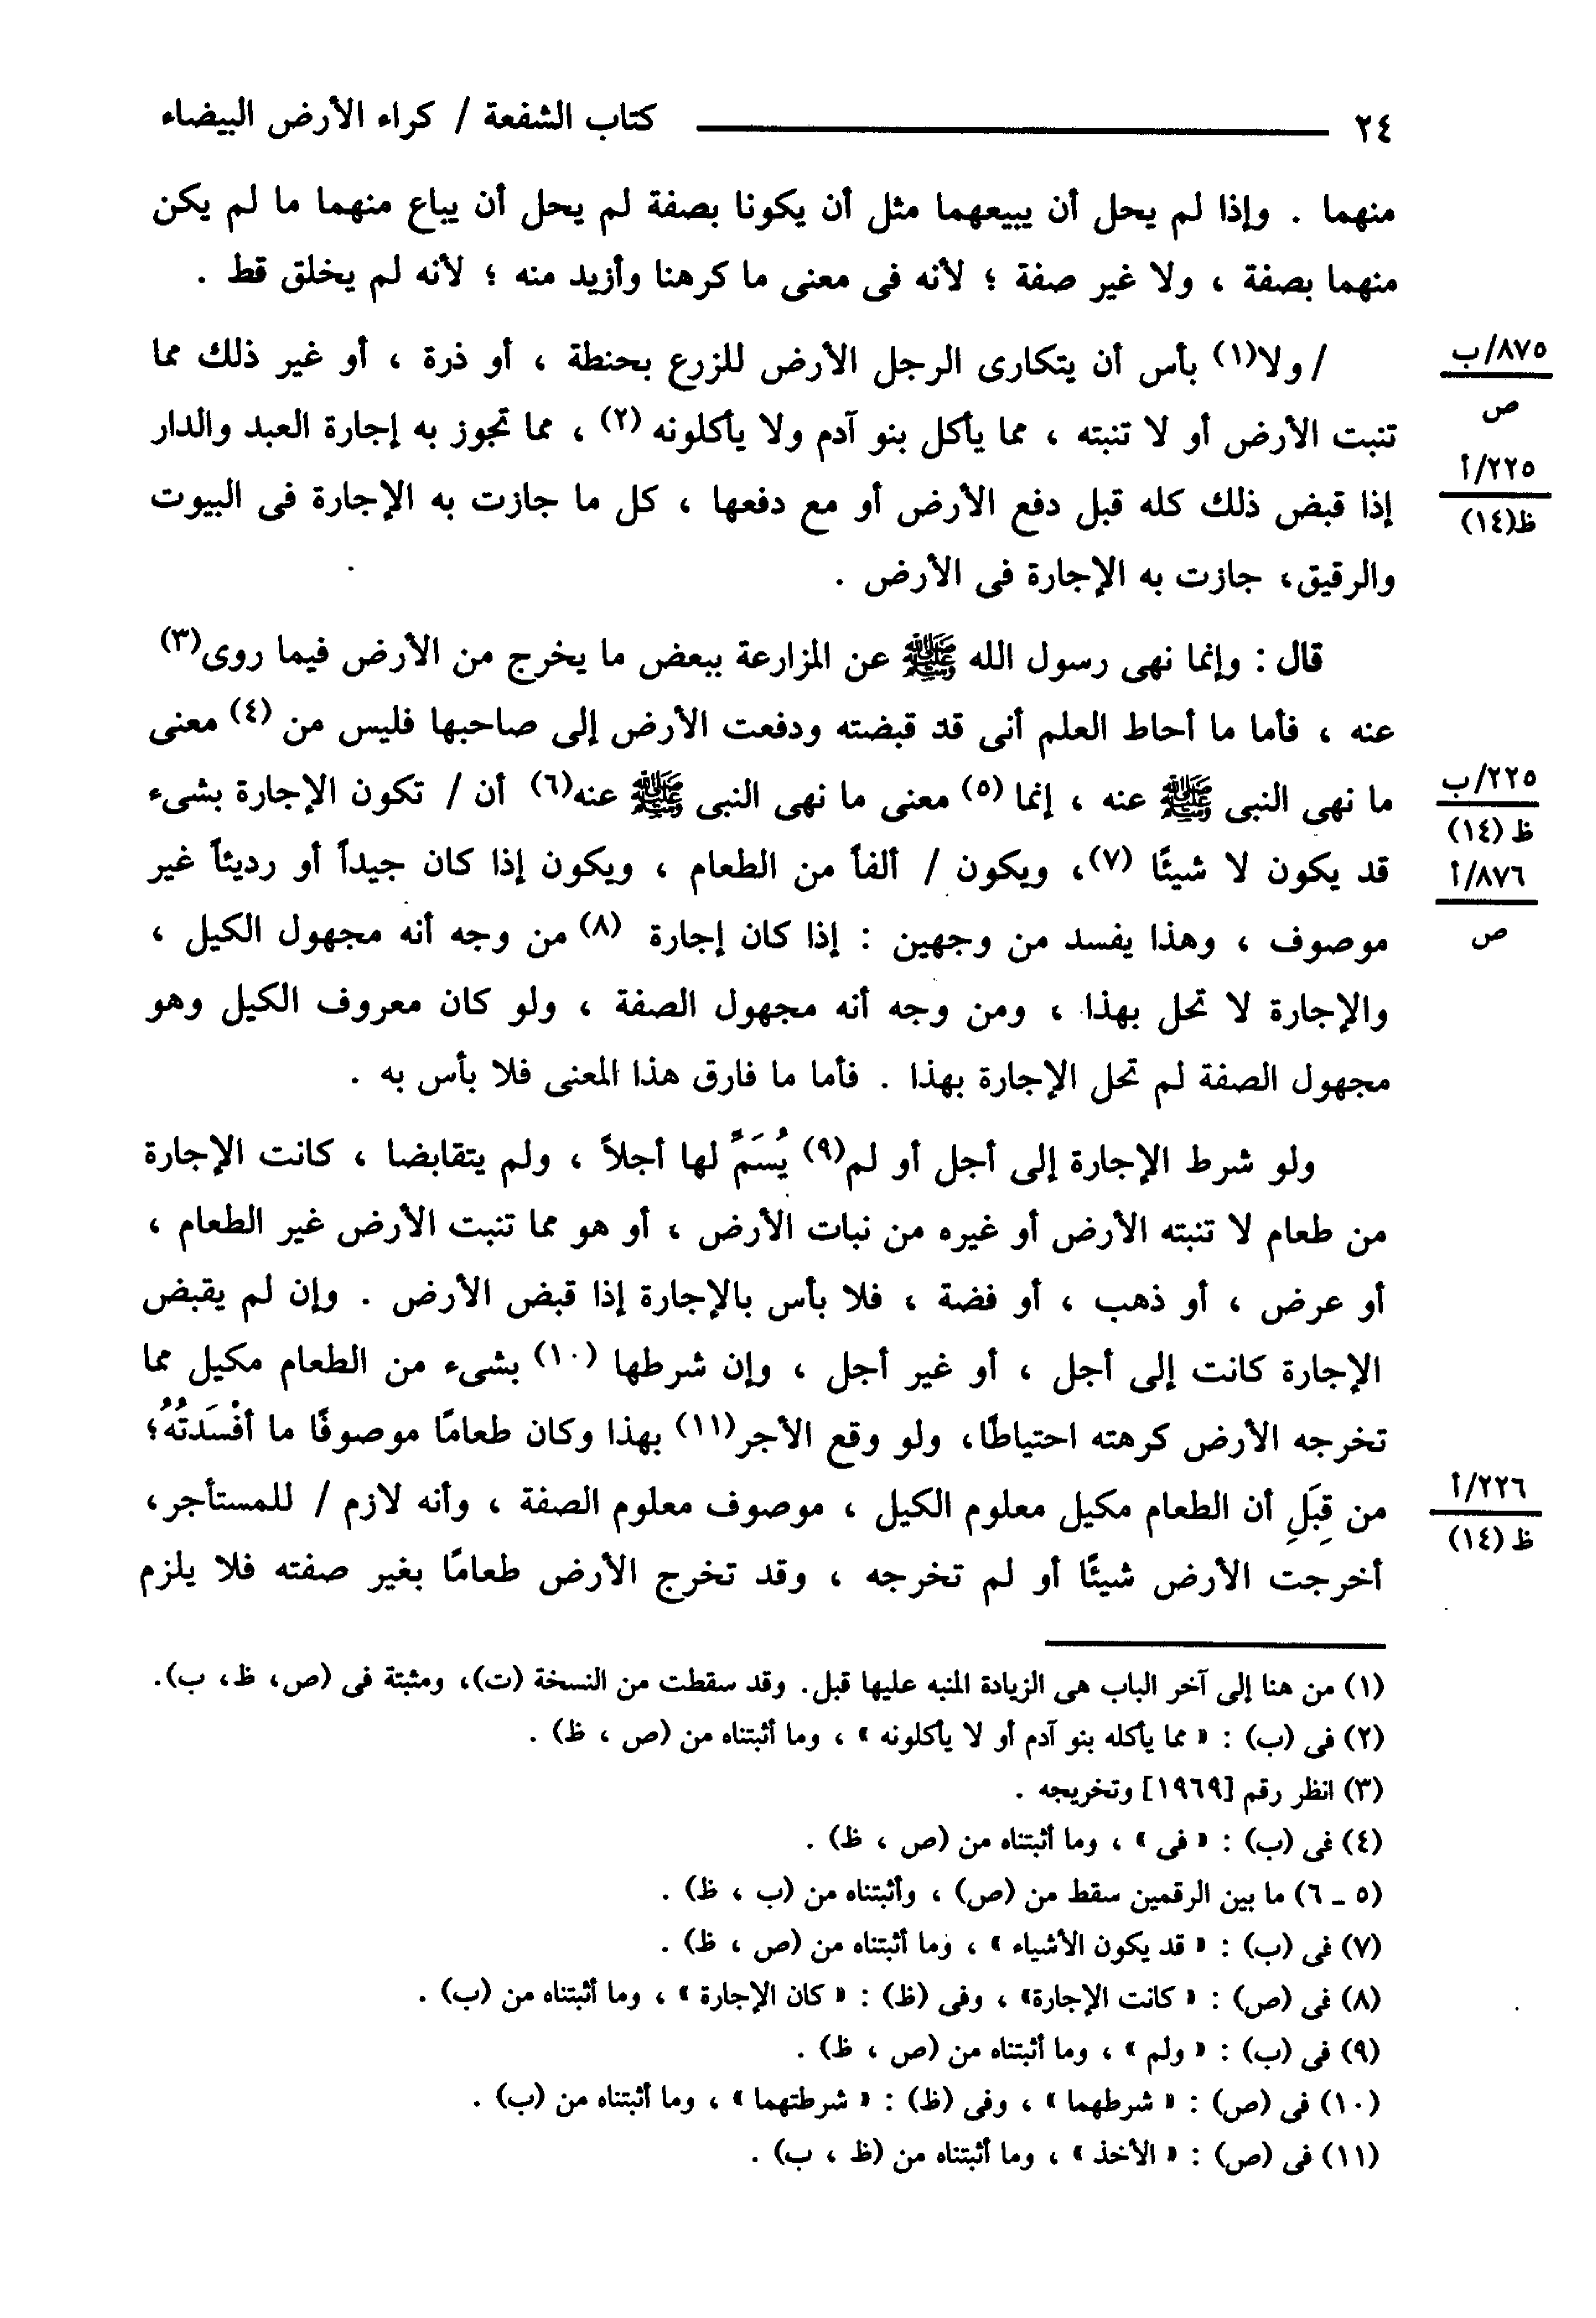 ٢٤ كتاب الشفعة / كراء الأرض البيضاء
منهما . وإذا لم يحل أن يبيعهما مثل أن يكونا بصفة لم يحل أن يباع منهما ما لم يكن
منهما بصفة ، ولا غير صفة ؛ لأنه فى معنى ما كرهنا وأزيد منه ؛ لأنه لم يخلق قط .
/ ولا(١) بأس أن يتكارى الرجل الأرض للزرع بحنطة ، أو ذرة ، أو غير ذلك مما
٨٧٥/ب
ص
تنبت الأرض أو لا تنبته ، مما يأكل بنو آدم ولا يأكلونه (٢) ، مما تجوز به إجارة العبد والدار
٢٢٥/أ
ظ(١٤)
إذا قبض ذلك كله قبل دفع الأرض أو مع دفعها ، كل ما جازت به الإجارة فى البيوت
والرقيق، جازت به الإجارة فى الأرض .
قال : وإنما نهى رسول الله ﷺ عن المزارعة ببعض ما يخرج من الأرض فيما روى(٣)
عنه ، فأما ما أحاط العلم أنى قد قبضته ودفعت الأرض إلى صاحبها فليس من (٤) معنى
ما نهى النبى ﷺ عنه ، إنما (٥) معنى ما نهى النبى ﷺ عنه(٦) أن / تكون الإجارة بشىء
٢٢٥/ب
ظ (١٤)
قد يكون لا شيئًا (٧)، ويكون / ألفاً من الطعام ، ويكون إذا كان جيداً أو رديئاً غير
٨٧٦/أ
ص
موصوف ، وهذا يفسد من وجهين : إذا كان إجارة (٨) من وجه أنه مجهول الكيل ،
والإجارة لا تحل بهذا ، ومن وجه أنه مجهول الصفة ، ولو كان معروف الكيل وهو
مجهول الصفة لم تحل الإجارة بهذا . فأما ما فارق هذا المعنى فلا بأس به .
ولو شرط الإجارة إلى أجل أو لم(٩) يُسَمِّ لها أجلاً ، ولم يتقابضا ، كانت الإجارة
من طعام لا تنبته الأرض أو غيره من نبات الأرض ، أو هو مما تنبت الأرض غير الطعام ،
أو عرض ، أو ذهب ، أو فضة ، فلا بأس بالإجارة إذا قبض الأرض . وإن لم يقبض
الإجارة كانت إلى أجل ، أو غير أجل ، وإن شرطها (١٠) بشىء من الطعام مكيل مما
تخرجه الأرض كرهته احتياطًا، ولو وقع الأجر(١١) بهذا وكان طعامًا موصوفًا ما أفْسَدتُهُ؛
من قِبَلِ أن الطعام مكيل معلوم الكيل ، موصوف معلوم الصفة ، وأنه لازم / للمستأجر،
٢٢٦/أ
ظ (١٤)
أخرجت الأرض شيئًا أو لم تخرجه ، وقد تخرج الأرض طعامًا بغير صفته فلا يلزم
(١) من هنا إلى آخر الباب هى الزيادة المنبه عليها قبل. وقد سقطت من النسخة (ت)، ومثبتة فى (ص، ظ، ب).
(٢) فى (ب) : « مما يأكله بنو آدم أو لا يأكلونه » ، وما أثبتناه من (ص ، ظ) .
(٣) انظر رقم [١٩٦٩] وتخريجه .
(٤) فى (ب) : « فى » ، وما أثبتناه من (ص ، ظ) .
(٥ - ٦) ما بين الرقمين سقط من (ص) ، وأثبتناه من (ب ، ظ) .
(٧) فى (ب) : « قد يكون الأشياء » ، وما أثبتناه من (ص ، ظ) .
(٨) فى (ص) : « كانت الإجارة» ، وفى (ظ) : « كان الإجارة » ، وما أثبتناه من (ب) .
(٩) فى (ب) : « ولم » ، وما أثبتناه من (ص ، ظ) .
(١٠) فى (ص) : « شرطهما » ، وفى (ظ) : « شرطتهما » ، وما أثبتناه من (ب) .
(١١) فى (ص) : « الأخذ » ، وما أثبتناه من (ظ ، ب) .